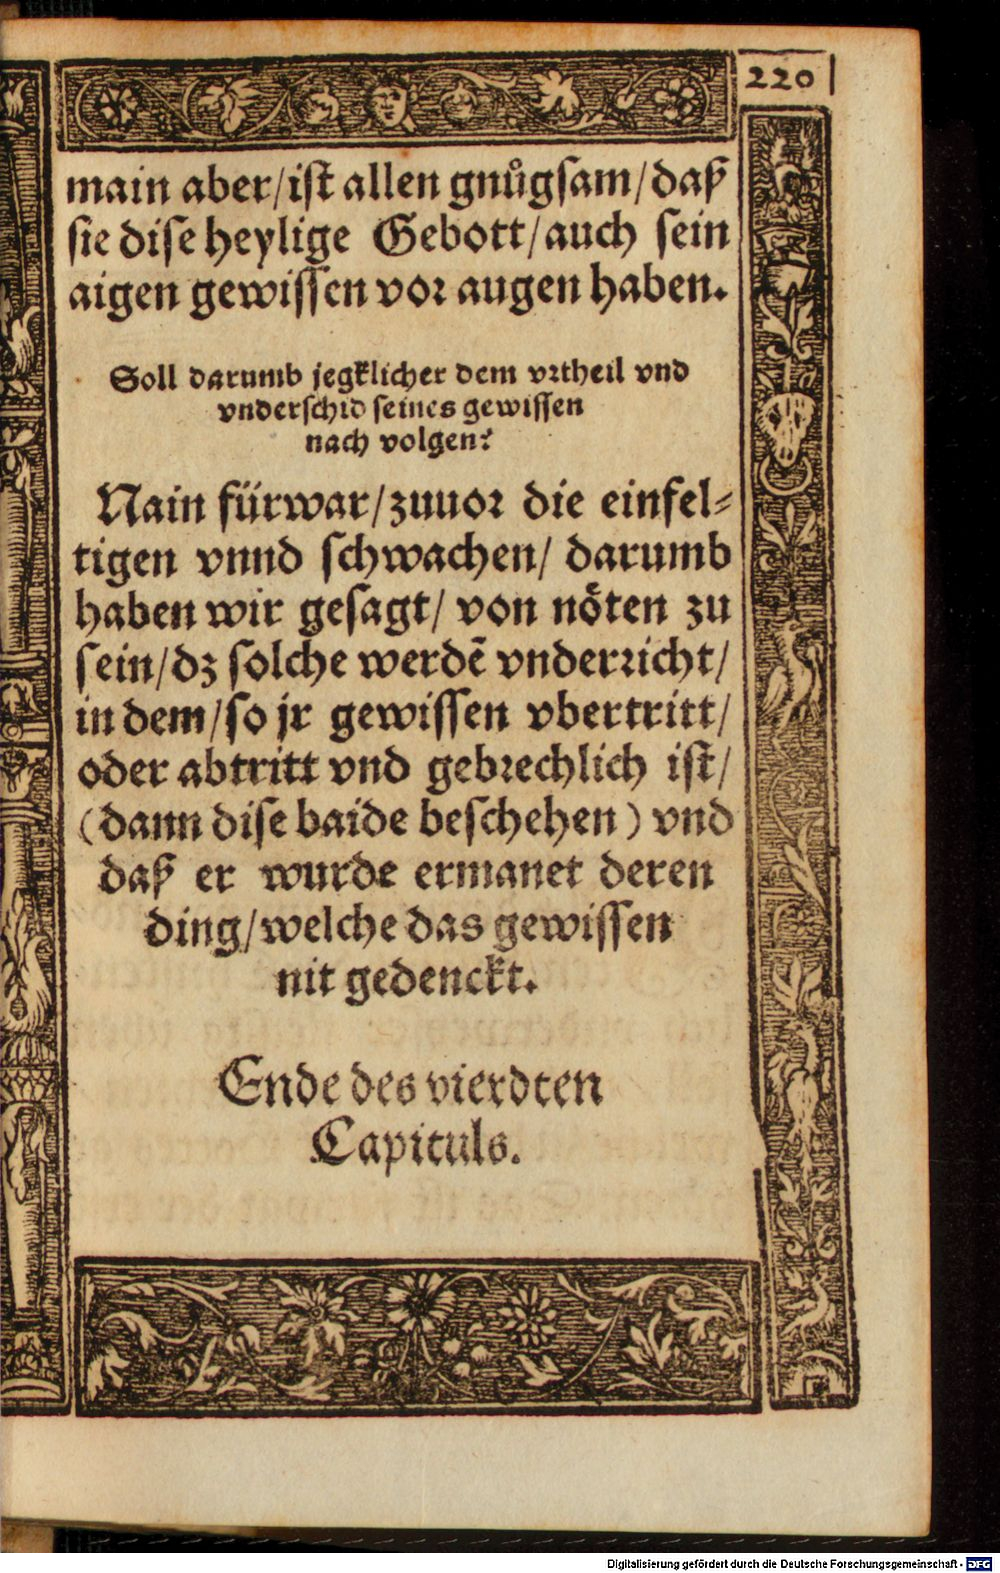 220
main aber/ist allen gnůgsam/daß
sie dise heylige Gebott/auch sein
aigen gewissen vor augen haben.
Soll darumb jegklicher dem vrtheil vnd
vnderschid seines gewissen
nach volgen?
Nain fürwar/zuuor die einfel-
tigen vnnd schwachen/ darumb
haben wir gesagt/ von nöten zu
sein/dz solche werdẽ vnderricht/
in dem/so jr gewissen vbertritt/
oder abtritt vnd gebrechlich ist/
(dann dise baide beschehen) vnd
daß er wurde ermanet deren
ding/welche das gewissen
nit gedenckt.
Ende des vierdten
Capituls.
Digitalisierung gefördert durch die Deutsche Forschungsgemeinschaft - DFG